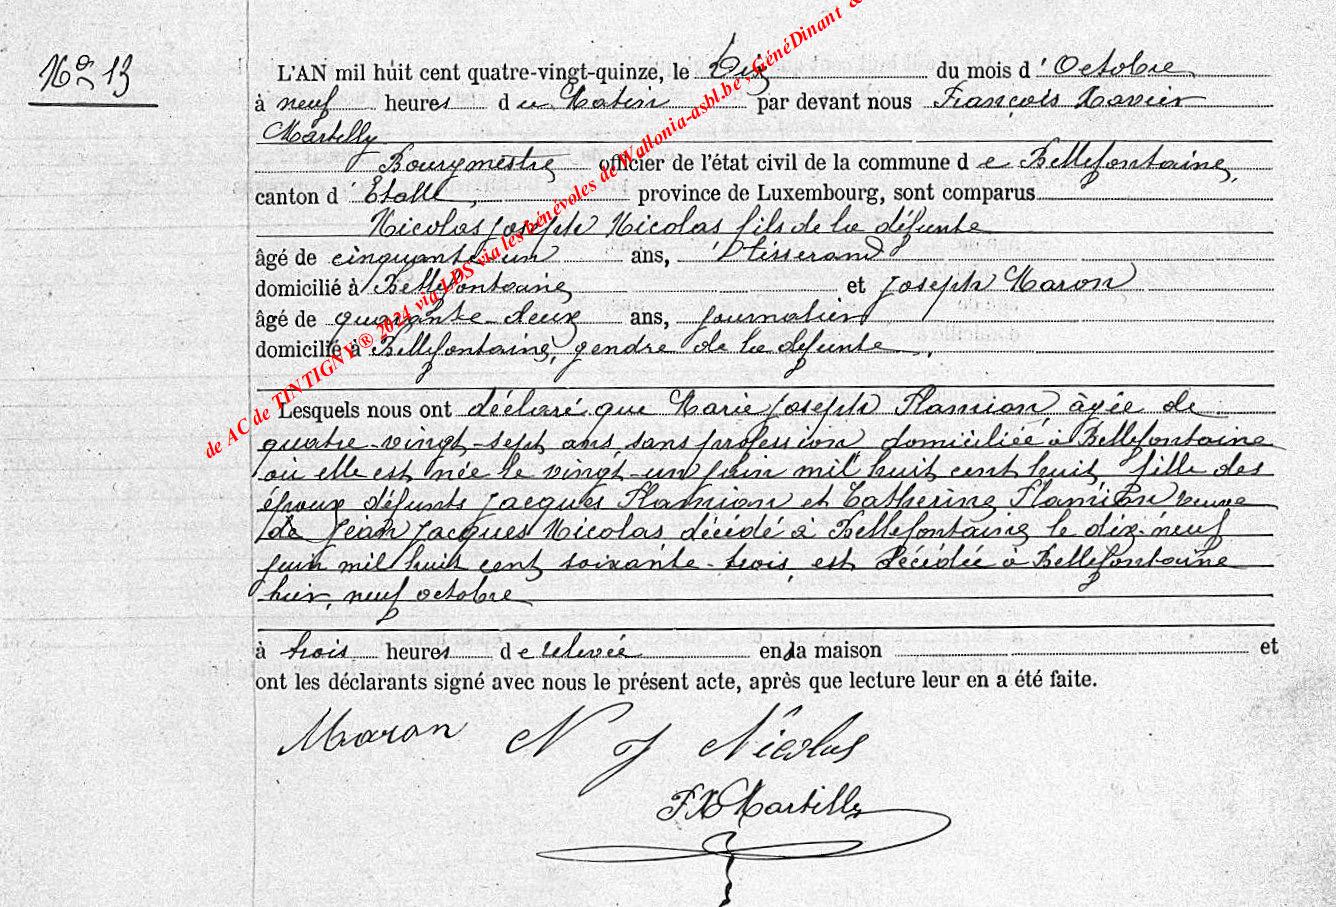 No 13
L'AN mil huit cent quatre-vingt-quinze, le Dix du mois d'Octobre
à neuf heures du Matin par devant nous François Xavier
Martilly
Bourgmestre officier de l'état civil de la commune de Bellefontaine,
canton d'Etalle, province de Luxembourg, sont comparus
Nicolas Joseph Nicolas fils de la défunte
âgé de cinquante-un ans, tisserand
domicilié à Bellefontaine et Joseph Maron
âgé de quarante-deux ans, journalier
domicilié à Bellefontaine, gendre de la défunte.
Lesquels nous ont déclaré que Marie Joseph Flamion, âgée de
quatre-vingt-sept ans, sans profession, domiciliée à Bellefontaine
où elle est née le vingt-un juin mil huit cent huit, fille des
époux défunts Jacques Flamion et Catherine Flamion veuve
de Jean Jacques Nicolas décédé à Bellefontaine le dix-neuf
juin mil huit cent soixante-trois, est décédée à Bellefontaine
hier, neuf octobre
à trois heures de relevée en la maison et
ont les déclarants signé avec nous le présent acte, après que lecture leur en a été faite.
Maron N J Nicolas
F X Martilly
de AC de TINTIGNY® 2024 via LDS via les bénévoles de Wallonia-asbl.be, GénéDinant &